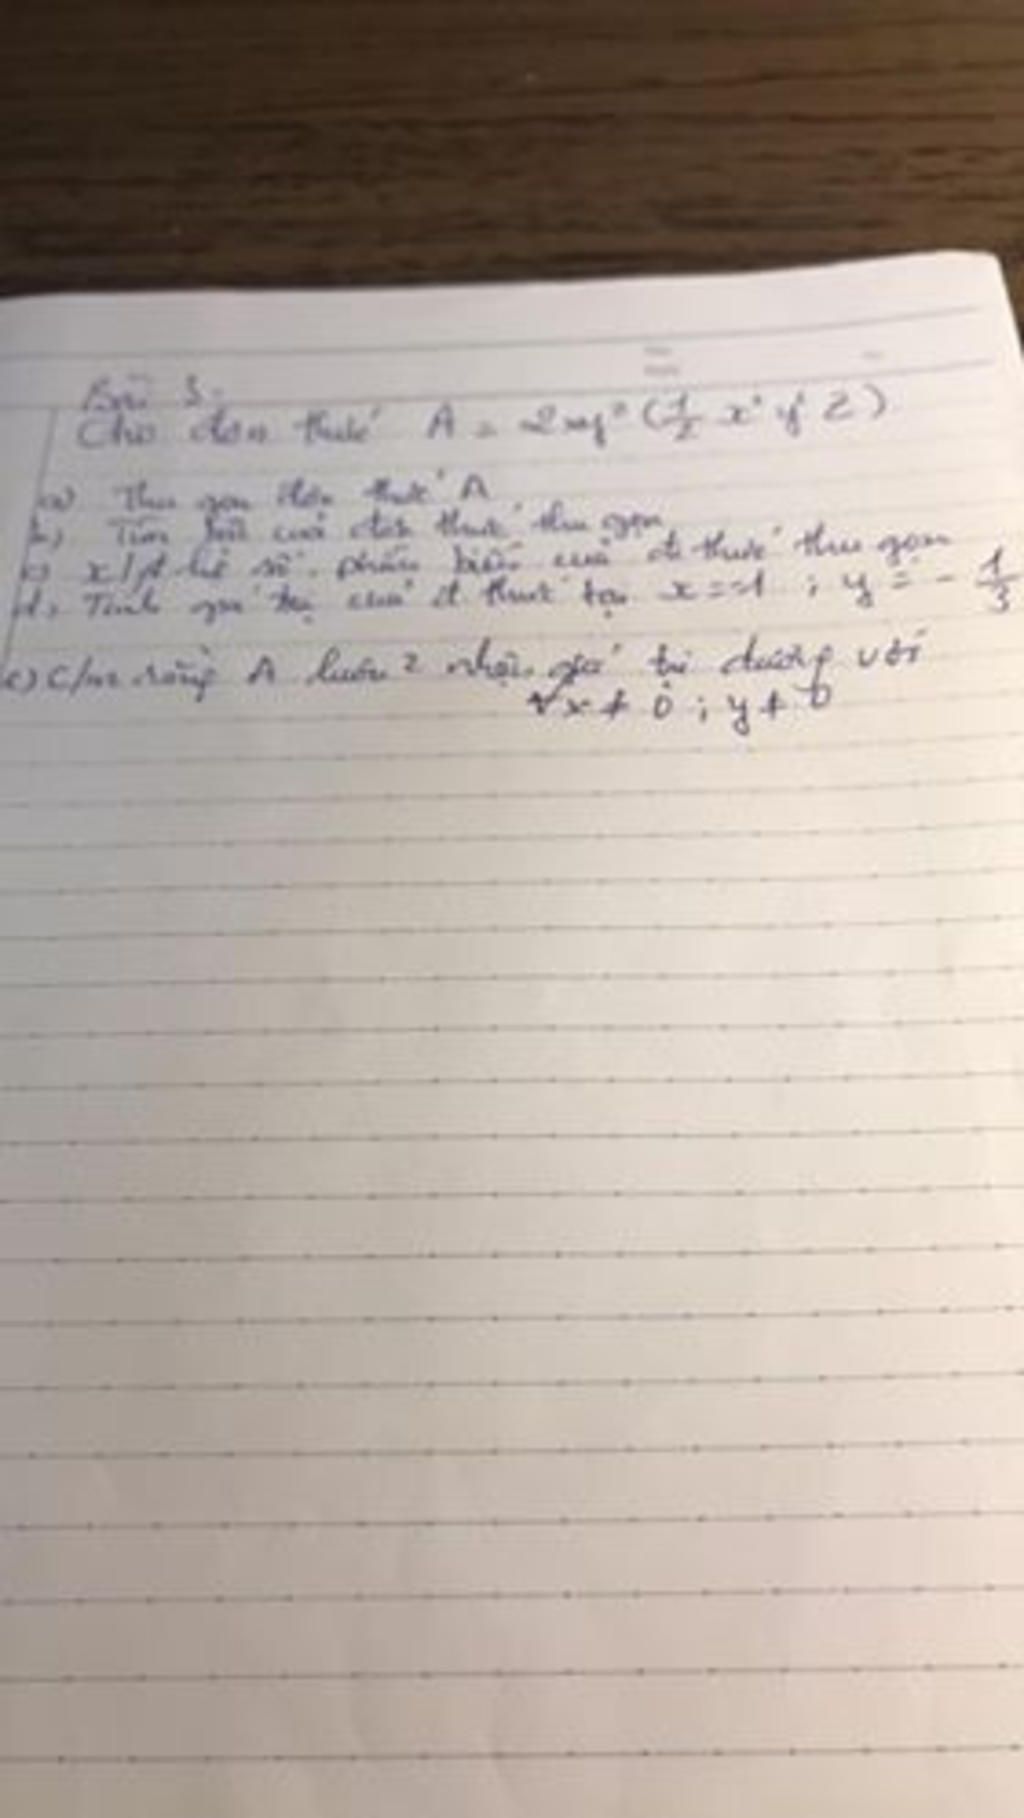 Bài 3:
Cho đơn thức A = 2xy² (1/2 x² y² z)
a) Thu gọn đơn thức A
b) Tìm bậc của đơn thức thu gọn
c) x/đ hệ số, phần biến của đ thức thu gọn
d, Tính giá trị của đ thức tại x = -1 ; y = - 1/3
e) C/m rằng A luôn² nhận giá trị dương với
∀x ≠ 0 ; y ≠ 0